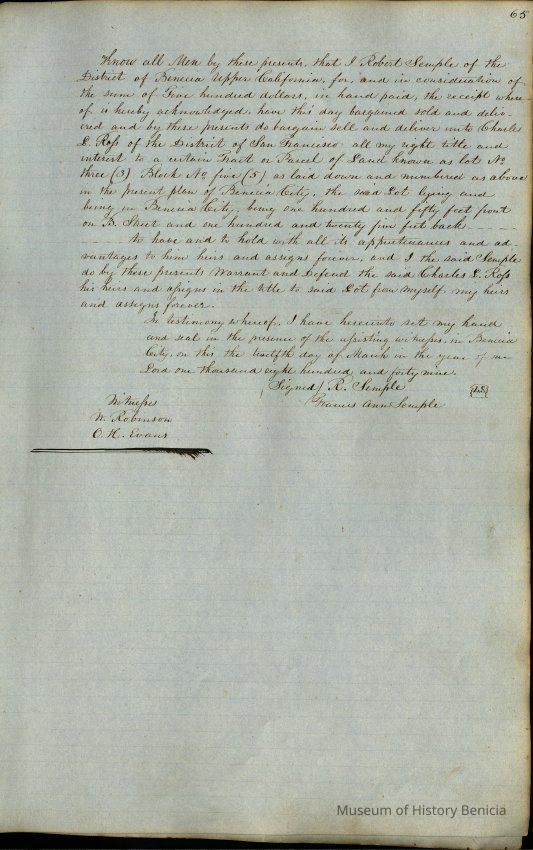 65
Know all Men by these presents, that I Robert Semple of the
District of Benecia Upper California, for, and in consideration of
the sum of Five hundred dollars, in hand paid, the receipt where
of is hereby acknowledged, have this day bargained sold and deliv-
ered and by these presents do bargain sell and deliver unto Charles
L. Ross of the District of San Francisco all my right title and
interest to a certain Tract or Parcel of Land known as lot No
three (3) Block No five (5) as laid down and numbered as above
in the present plan of Benecia City, the said Lot lying and
being in Benecia City, being one hundred and fifty feet front
on B. Street and one hundred and twenty five feet back
to have and to hold with all its appurtenances and ad-
vantages to him heirs and assigns forever, and I the said Semple
do by these presents Warrant and Defend the said Charles L. Ross
his heirs and assigns in the title to said Lot from myself my heirs
and assigns forever.
In testimony whereof, I have hereunto set my hand
and seal in the presence of the witnesses, in Benecia
City, on this the twelfth day of March in the year of our
Lord one thousand eight hundred and forty nine.
(Signed) R. Semple {L.S.}
Frances Ann Semple
Witness
W. Robinson
O. H. Evans
Museum of History Benicia